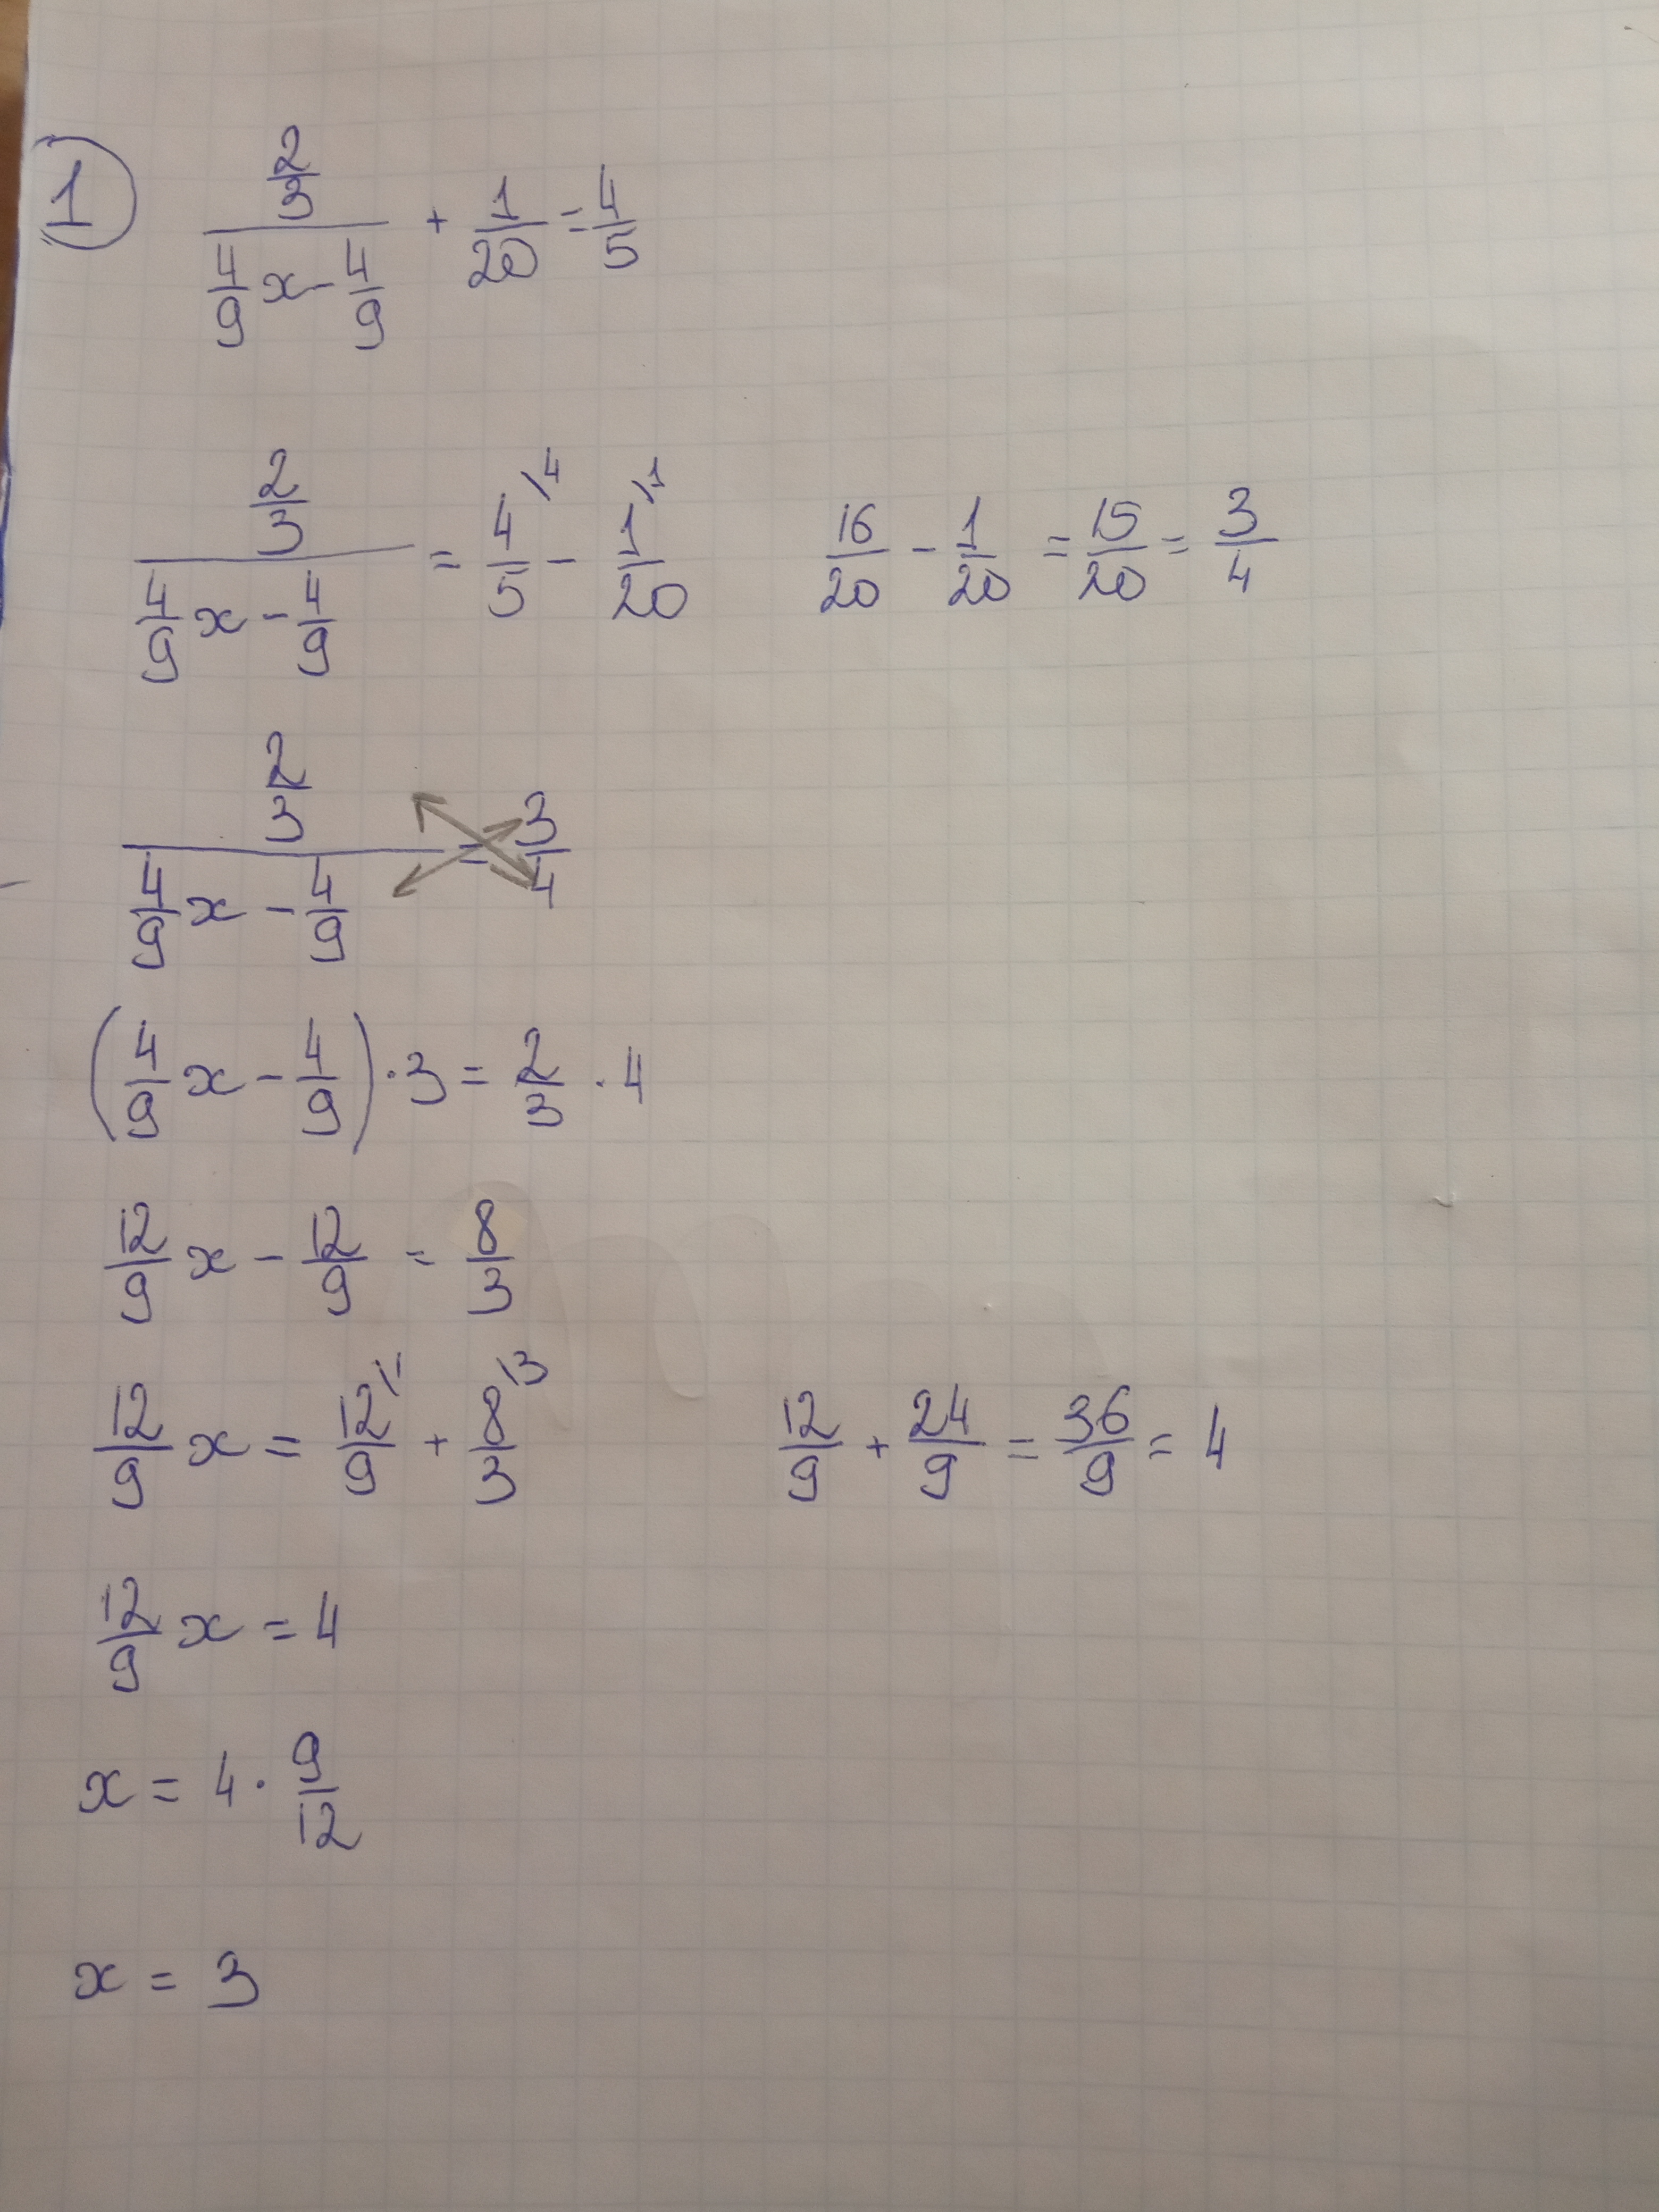 1 (2/3)/(4/9 x - 4/9) + 1/20 = 4/5
(2/3)/(4/9 x - 4/9) = 4/5 /4 - 1/20 /1 16/20 - 1/20 = 15/20 = 3/4
(2/3)/(4/9 x - 4/9) = 3/4
(4/9 x - 4/9) · 3 = 2/3 · 4
12/9 x - 12/9 = 8/3
12/9 x = 12/9 \1 + 8/3 \3 12/9 + 24/9 = 36/9 = 4
12/9 x = 4
x = 4 · 9/12
x = 3